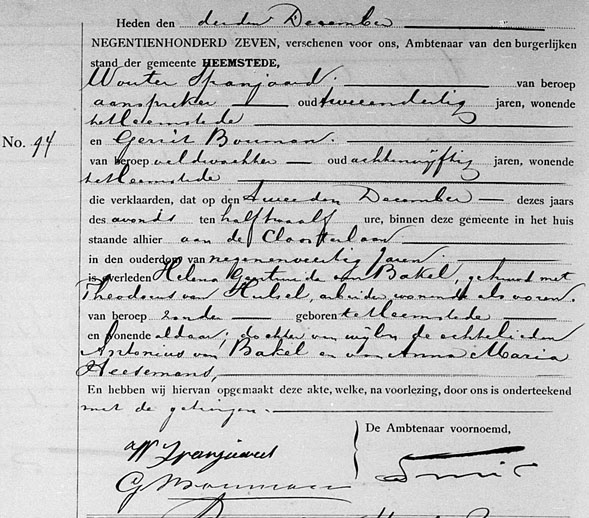 Heden den derden December
NEGENTIENHONDERD ZEVEN, verschenen voor ons, Ambtenaar van den burgerlijken
stand der gemeente HEEMSTEDE,
Wouter Spanjaard. van beroep
aanspreker oud tweeendertig jaren, wonende
te Heemstede
No. 94 en Gerrit Bouman.
van beroep veldwachter oud achtenvijftig jaren, wonende
te Heemstede
die verklaarden, dat op den tweeden December dezes jaars
des avonds ten half twaalf ure, binnen deze gemeente in het huis
staande alhier aan de Cloosterlaan
in den ouderdom van negenenveertig jaren.
is overleden Helena Gertruida van Bakel, gehuwd met
Theodorus van Hulsel, arbeider, wonende als voren.
van beroep zonder geboren te Heemstede
en wonende aldaar; dochter van wijlen de echtelieden
Antonius van Bakel en van Anna Maria
Heesemans,
En hebben wij hiervan opgemaakt deze akte, welke, na voorlezing, door ons is onderteekend
met de getuigen.
De Ambtenaar voornoemd,
W Spanjaard
G Bouman